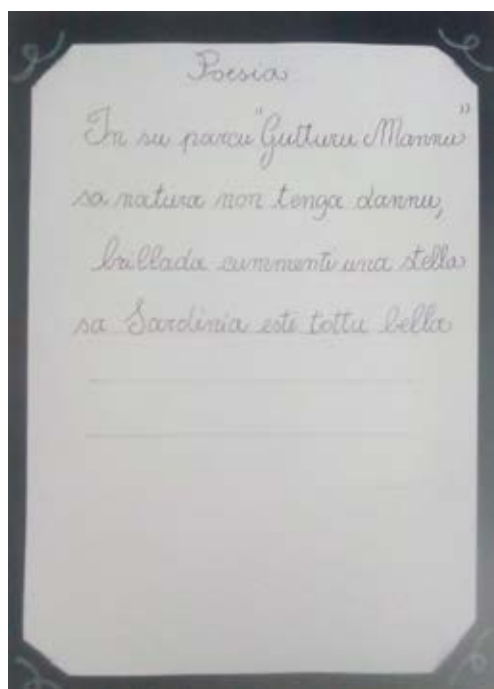 Poesia
In su parcu "Gutturu Mannu"
sa natura non tenga dannu,
brillada cummenti una stella
sa Sardinia este tottu bella